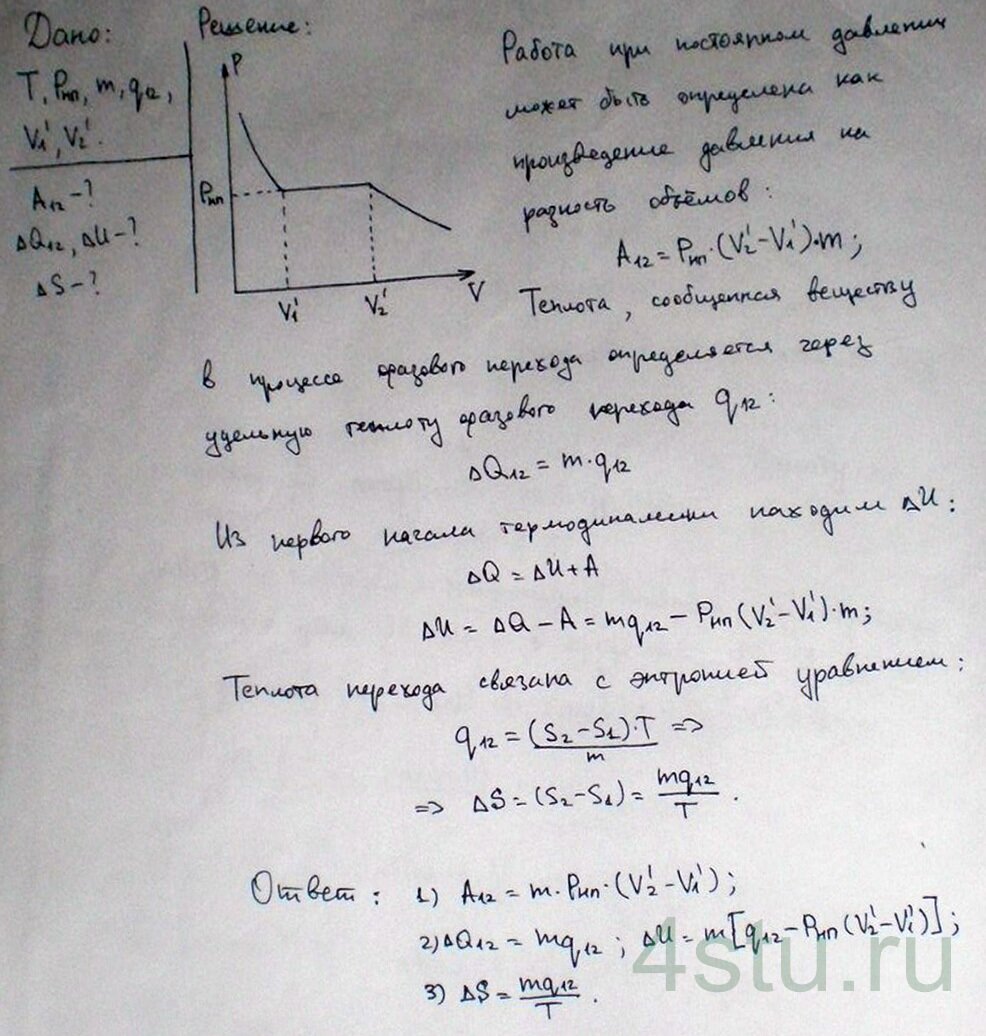 Дано:
T, Pнп, m, q12,
V1', V2'.
A12 - ?
ΔQ12, ΔU - ?
ΔS - ?
Решение:
P
Pнп
V1'
V2'
V
Работа при постоянном давлении
может быть определена как
произведение давления на
разность объёмов:
A12 = Pнп·(V2'-V1')·m;
Теплота, сообщенная веществу
в процессе фазового перехода определяется через
удельную теплоту фазового перехода q12:
ΔQ12 = m·q12
Из первого начала термодинамики находим ΔU:
ΔQ = ΔU + A
ΔU = ΔQ - A = mq12 - Pнп(V2'-V1')·m;
Теплота перехода связана с энтропией уравнением:
q12 = (S2-S1)·T / m =>
=> ΔS = (S2-S1) = mq12 / T.
Ответ: 1) A12 = m·Pнп·(V2'-V1');
2) ΔQ12 = mq12; ΔU = m[q12-Pнп(V2'-V1')];
3) ΔS = mq12 / T.
4stu.ru